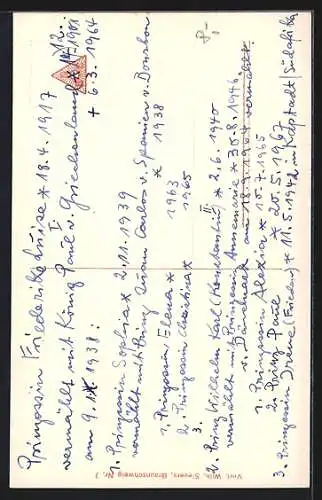 Prinzessin Friederike Luise * 18.4.1917
vermählt mit König Paul I v. Griechenland * 14.12.1901
am 9.1.1938: + 6.3.1964
1. Prinzessin Sophia * 2.11.1939
vermählt mit Prinz Juan Carlos v. Spanien v. Bourbon
* 1938
1. Prinzessin Elena * 1963
2. Prinzessin Christina * 1965
3.
2. Prinz Wilhelm Karl (Konstantin) II * 2.6.1940
vermählt mit Prinzessin Annemarie * 30.8.1946
v. Dänemark am 18.9.1964 vermählt.
1. Prinzessin Alexia * 10.7.1965
2. Prinz Paul * 20.5.1967
3. Prinzessin Irene (Frieden) * 11.5.1942 in Kapstadt/Südafrika
Verl. Wilh. Sievers, Braunschweig Nr. 7